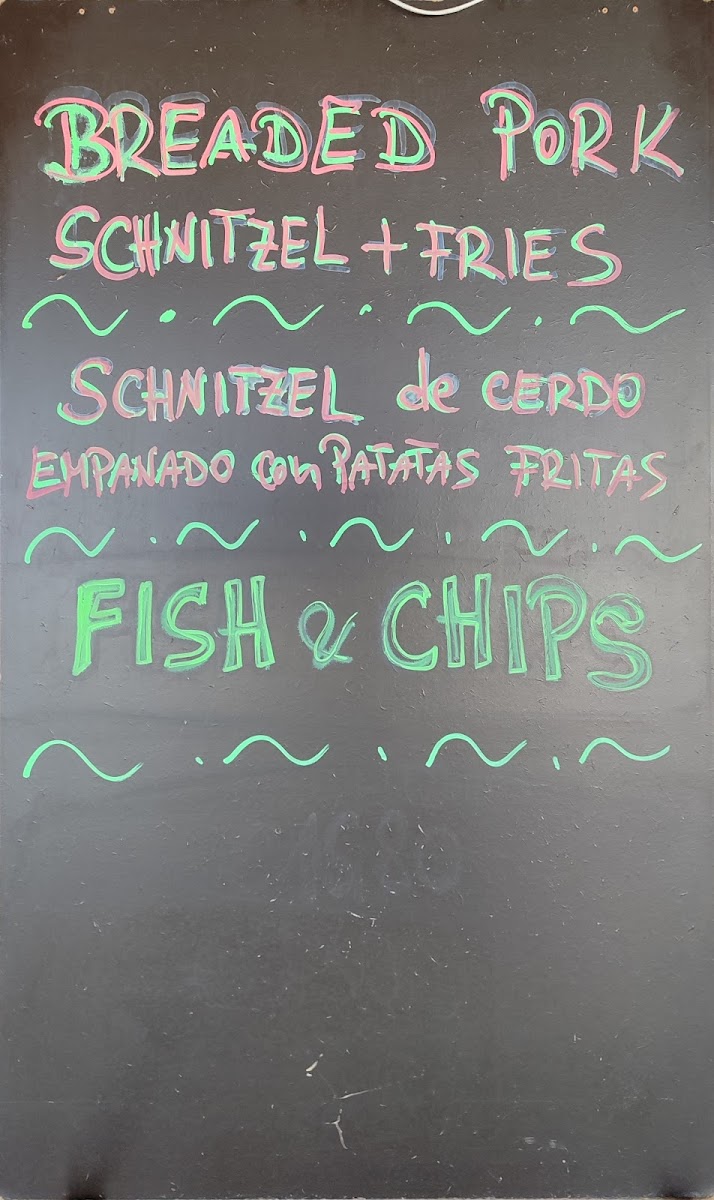 BREADED PORK
SCHNITZEL + FRIES
SCHNITZEL de CERDO
EMPANADO con PATATAS FRITAS
FISH & CHIPS